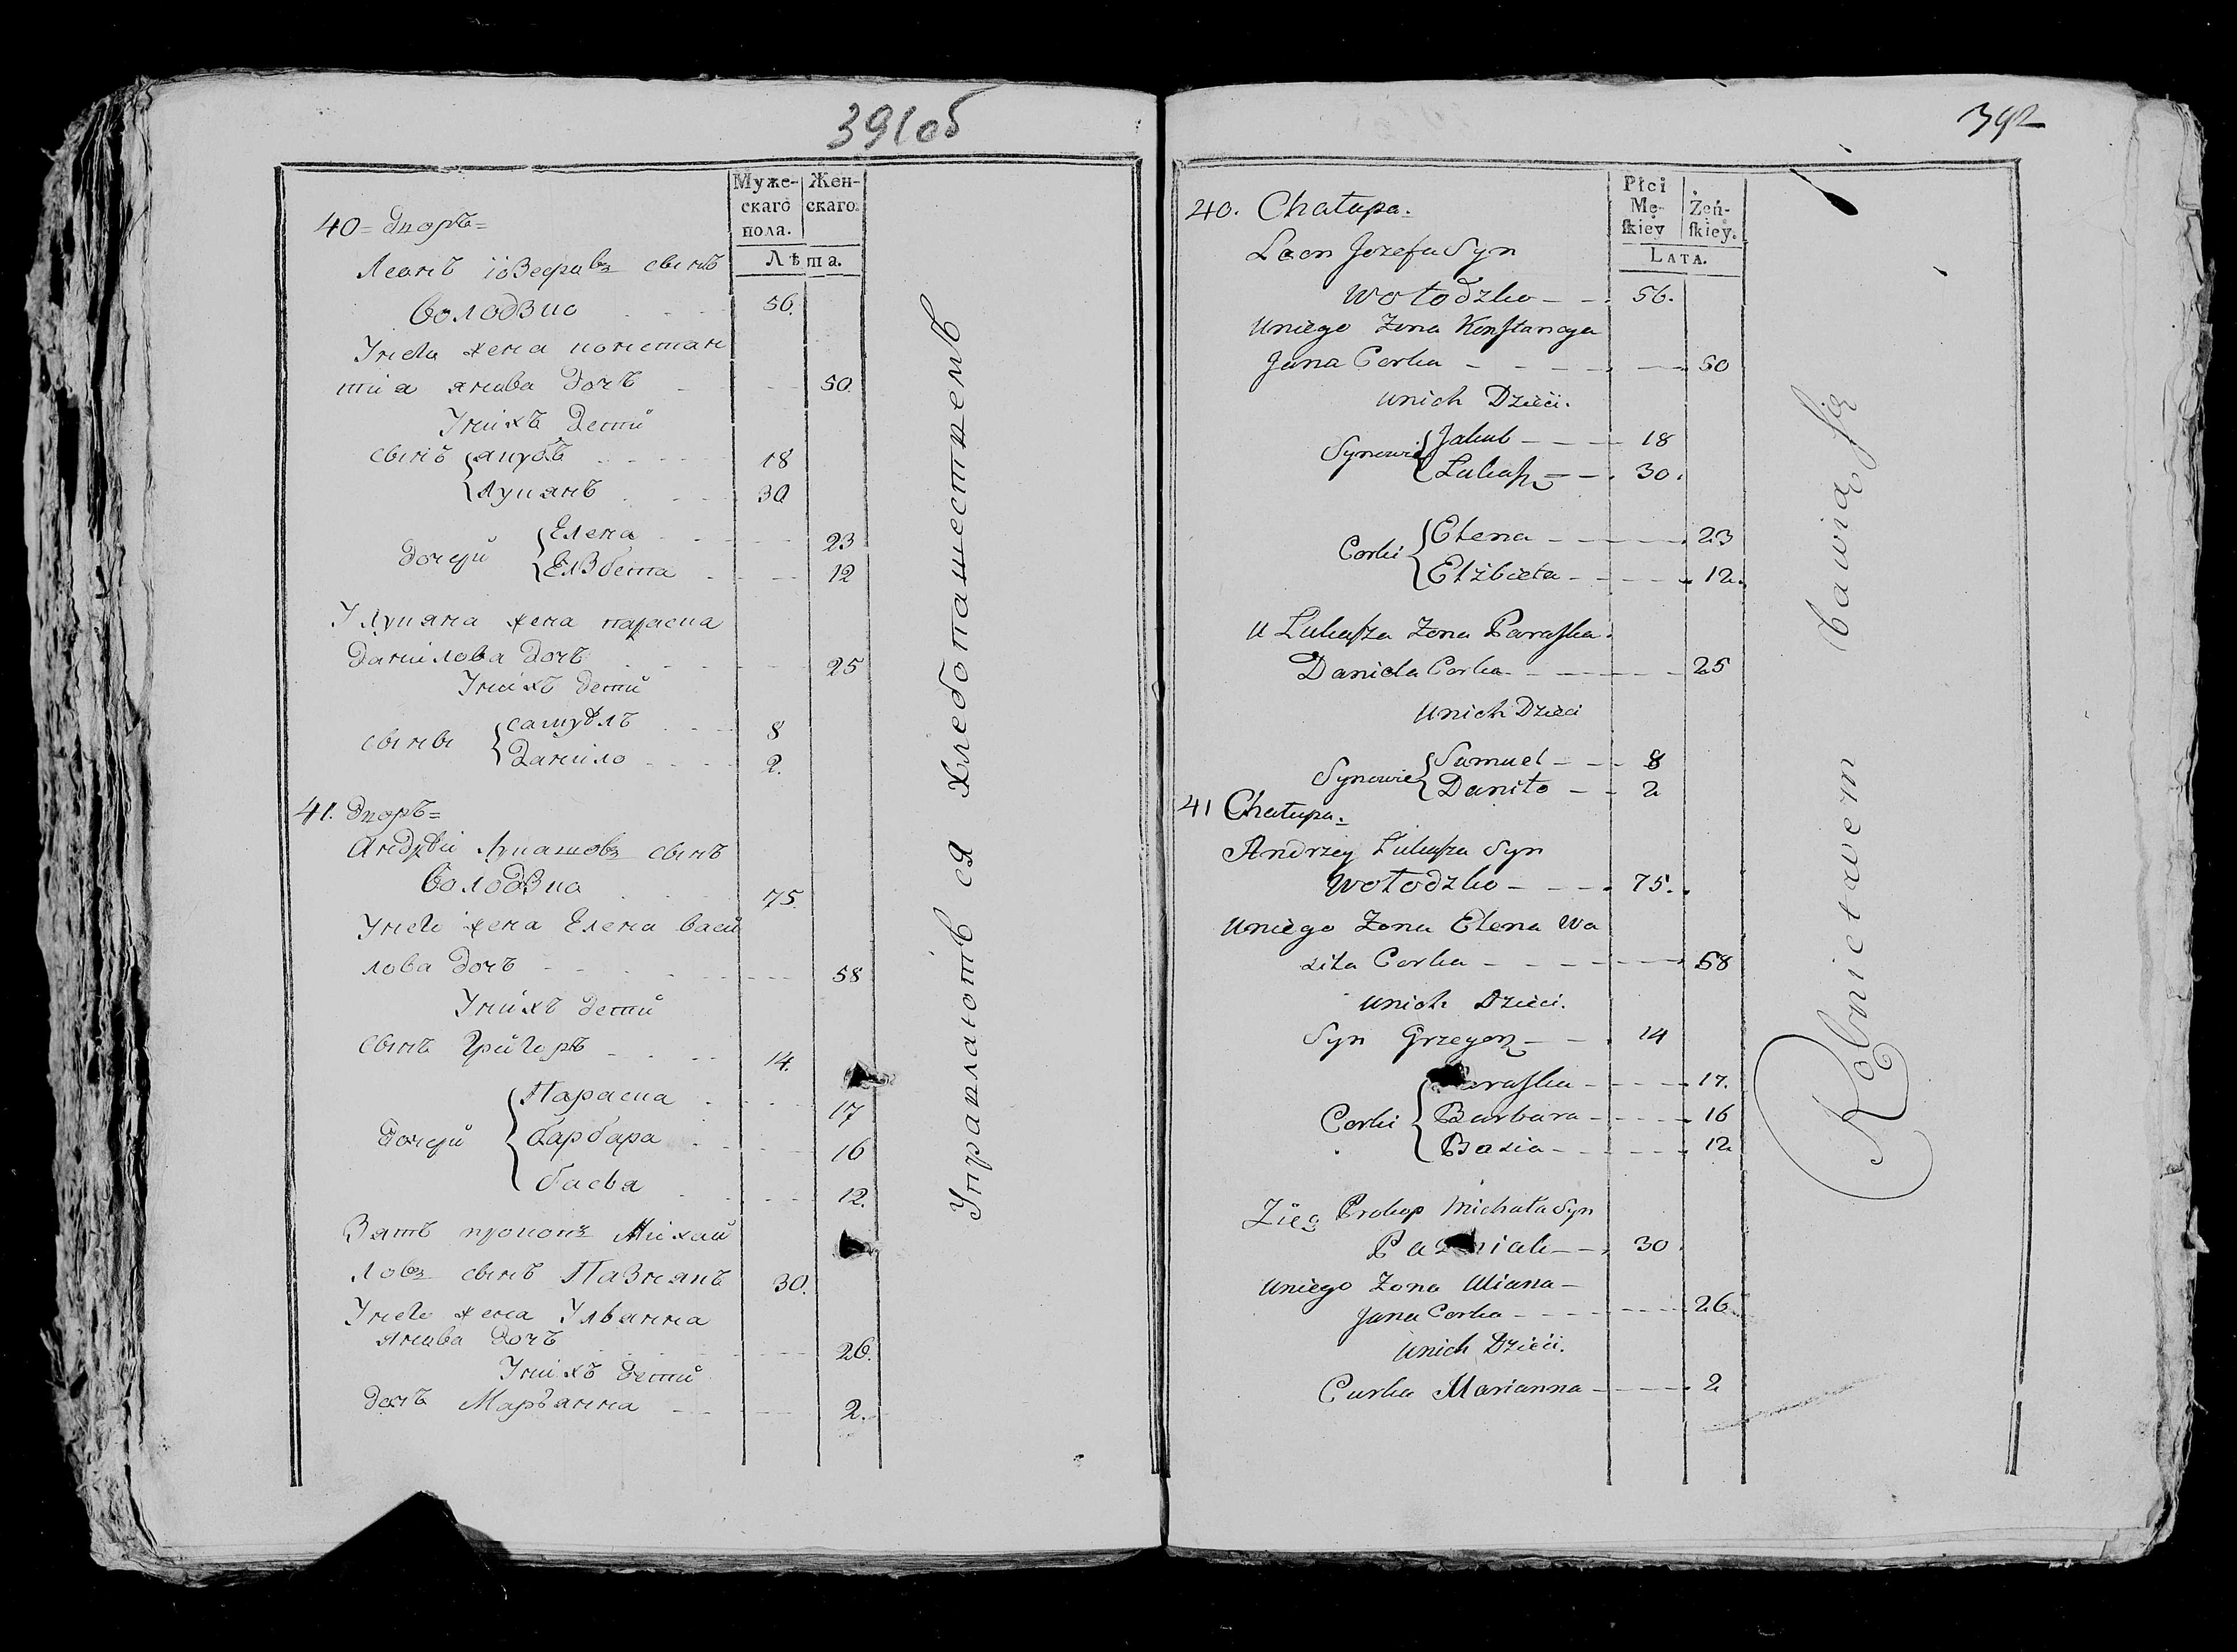 391об
Муже-
скаго
пола.
Жен-
скаго.
Лѣта.
40= дворъ=
Леонъ іозефавъ сынъ
володзко 56.
У него жена констан
тія янова дочъ 50.
У нихъ дети
сынъ якубъ 18
лукянъ 30
дочери Елена 23
Елзбета 12
У лукяна жена параска
данилова дочъ 25
У нихъ дети
сыны самуѣлъ 8
данило 2.
41. дворъ=
андрѣй лукашовъ сынъ
володзко 75.
У него жена Елена васи
лова дочъ 58
У нихъ дети
сынъ григоръ 14.
дочери Параска 17
барбара 16
басья 12.
зять прокопъ михай
ловъ сынъ Пазнякъ 30.
У него жена Ульянна
янова дочъ 26.
У нихъ дети
дочъ Марьянна 2.
Управлаютъ ся хлебопашествемъ
392
Płci
Mę-
skiey
Żeń-
skiey.
LATA.
40. Chałupa.
Leon Jozefa Syn
Wołodzko 56.
U niego Zona Konstancya
Jana Corka 50
U nich Dzieci.
Synowie Jakub 18
Lukasz 30.
Corki Elena 23
Elżbieta 12.
U Lukasza Zona Paraska
Daniela Corka 25
U nich Dzieci
Synowie Samuel 8
Daniło 2
41 Chałupa.
Andrzey Lukasza Syn
Wołodzko 75.
U niego Zona Elena Wa
zila Corka 58
U nich Dzieci.
Syn Grzegorz 14
Corki Paraska 17.
Barbara 16
Basia 12
Zięć Prokop Michała Syn
Pazniak 30
U niego Zona Uliana
Jana Corka 26
U nich Dzieci.
Curka Marianna 2
Rolnictwem bawią się